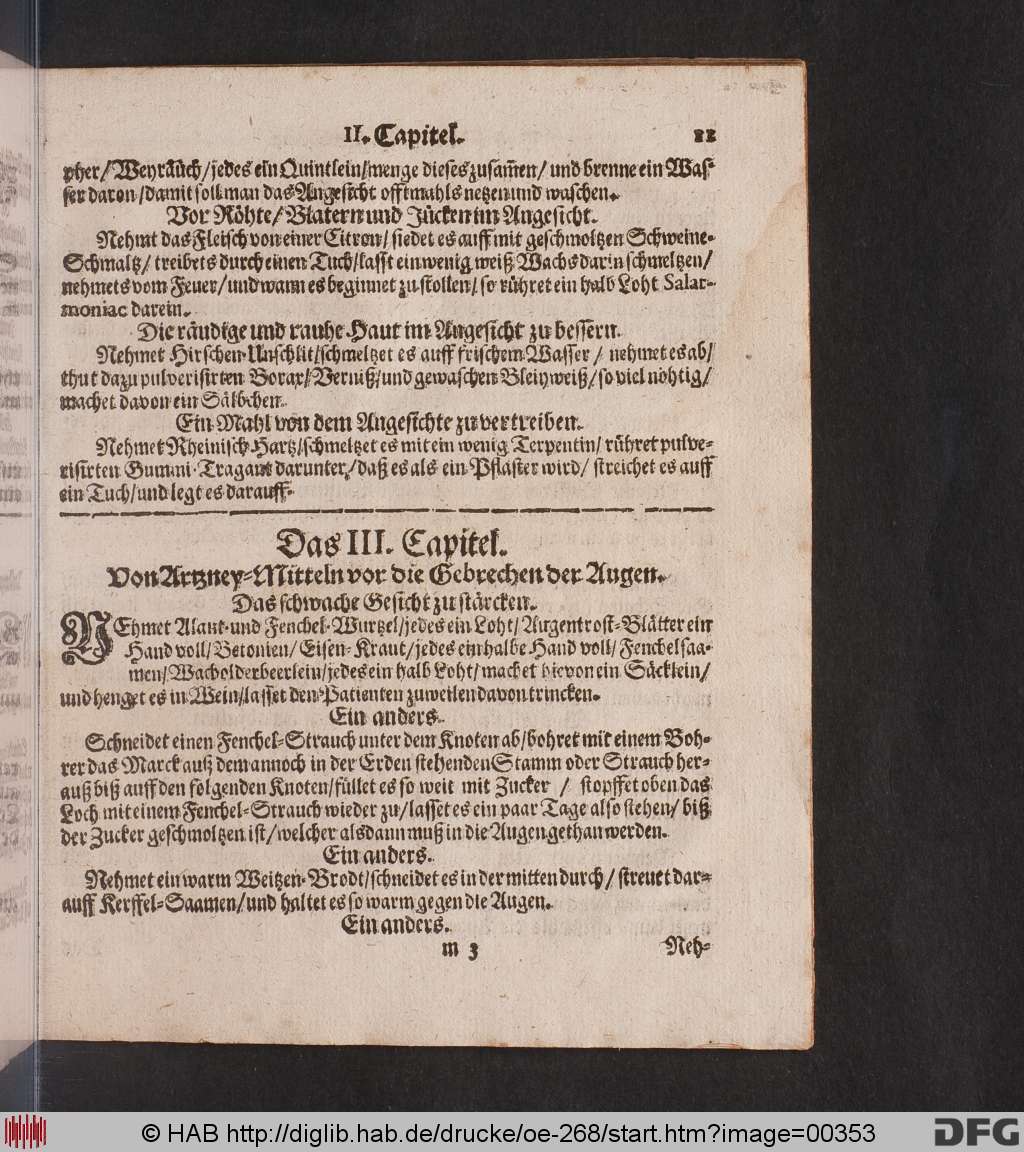 II. Capitel.
pher/Weyräuch/jedes ein Quintlein/menge dieses zusam̅en/ und brenne ein Was-
ser daron/damit soll man das Angesicht offtmahls netzen und waschen.
Vor Röhte/Blatern und Jücken im Angesicht.
Nehmt das Fleisch von einer Citron/ siedet es auff mit geschmoltzen Schweine-
Schmaltz/ treibets durch einen Tuch/lasst ein wenig weiß Wachs darin schmeltzen/
nehmets vom Feuer/und wann es beginnet zu stollen/ so rühret ein halb Loht Salar-
moniac darein.
Die räudige und rauhe Haut im Angesicht zu bessern.
Nehmet Hirschen-Unschlit/schmeltzet es auff frischem Wasser/ nehmet es ab/
thut dazu pulverisirten Borax/Verniß/und gewaschen Bleyweiß/so viel nöhtig/
machet davon ein Sälbchen.
Ein Mahl von dem Angesichte zu vertreiben.
Nehmet Rheinisch-Hartz/schmeltzet es mit ein wenig Terpentin/ rühret pulve-
risirten Gummi-Tragant darunter/daß es als ein Pflaster wird/ streichet es auff
ein Tuch/und legt es darauff.
Das III. Capitel.
Von Artzney-Mitteln vor die Gebrechen der Augen.
Das schwache Gesicht zu stärcken.
NEhmet Alant-und Fenchel-Wurtzel/jedes ein Loht/Augentrost-Blätter ein
Hand voll/Betonien/Eisen-Kraut/jedes ein halbe Hand voll/Fenchelsaa-
men/Wacholderbeerlein/jedes ein halb Loht/machet hievon ein Säcklein/
und henget es in Wein/lasset den Patienten zuweilen davon trincken.
Ein anders.
Schneidet einen Fenchel-Strauch unter dem Knoten ab/bohret mit einem Boh-
rer das Marck auß dem annoch in der Erden stehenden Stamm oder Strauch her-
auß biß auff den folgenden Knoten/füllet es so weit mit Zucker / stopffet oben das
Loch mit einem Fenchel-Strauch wieder zu/lasset es ein paar Tage also stehen/ biß
der Zucker geschmoltzen ist/welcher alsdann muß in die Augen gethan werden.
Ein anders.
Nehmet ein warm Weitzen-Brodt/schneidet es in der mitten durch/streuet dar-
auff Kerffel-Saamen/und haltet es so warm gegen die Augen.
Ein anders.
m 3 Neh-
© HAB http://diglib.hab.de/drucke/oe-268/start.htm?image=00353
DFG